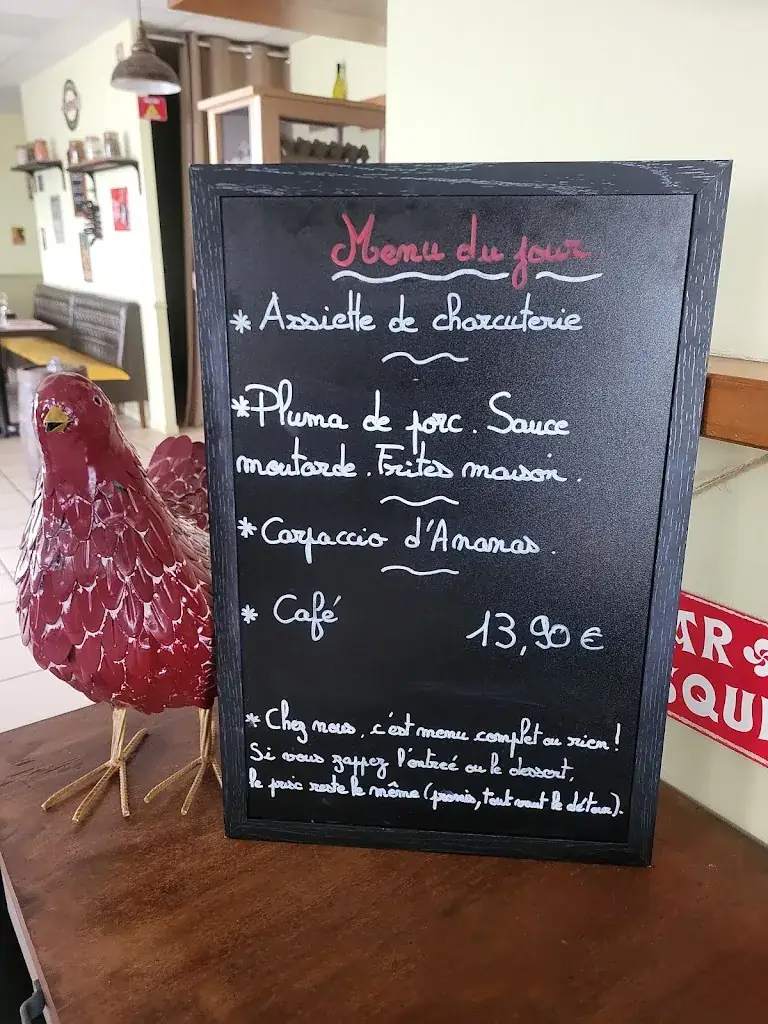 Menu du jour
* Assiette de charcuterie
* Pluma de porc. Sauce
moutarde. Frites maison.
* Carpaccio d'Ananas.
* Café 13,90 €
* Chez nous, c'est menu complet ou rien !
Si vous zappez l'entreé ou le dessert,
le prix reste le même (promis, tout vaut le détour).
AR
SQUE